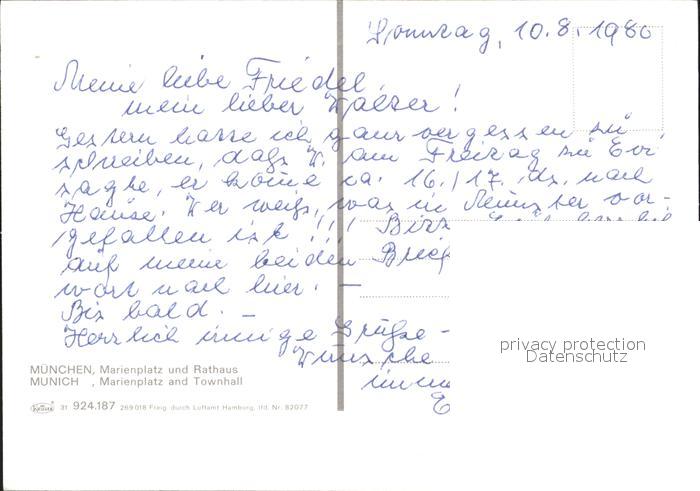 Sonntag, 10.8.1980
Meine liebe Friedel
mein lieber Walter!
Gestern hatte ich ganz vergessen zu
schreiben, daß W. am Freitag zu Evi
sagte, er könne ca. 16./17. ds. nach
Hause. Wer weiß, was in Münster vor-
gefallen ist!!! Bitt
auf meine beiden Brief
wort nach hier. —
Bis bald. —
Herzlich innige Grüße -
Wünsche
MÜNCHEN, Marienplatz und Rathaus
MUNICH , Marienplatz and Townhall
Krüger 31 924.187 269018 Freig. durch Luftamt Hamburg, lfd. Nr. 82077
privacy protection
Datenschutz